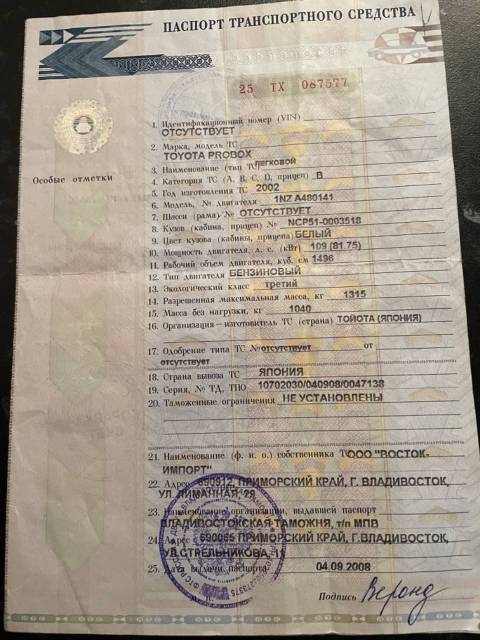 ПАСПОРТ ТРАНСПОРТНОГО СРЕДСТВА
25 ТХ 087577
Особые отметки
1. Идентификационный номер (VIN)
ОТСУТСТВУЕТ
2. Марка, модель ТС
TOYOTA PROBOX
3. Наименование (тип ТС) ЛЕГКОВОЙ
4. Категория ТС (А, В, С, D, прицеп) В
5. Год изготовления ТС 2002
6. Модель, № двигателя 1NZ A480141
7. Шасси (рама) № ОТСУТСТВУЕТ
8. Кузов (кабина, прицеп) № NCP51-0003518
9. Цвет кузова (кабины, прицепа) БЕЛЫЙ
10. Мощность двигателя, л. с. (кВт) 109 (81.75)
11. Рабочий объем двигателя, куб. см 1496
12. Тип двигателя БЕНЗИНОВЫЙ
13. Экологический класс третий
14. Разрешенная максимальная масса, кг 1315
15. Масса без нагрузки, кг 1040
16. Организация–изготовитель ТС (страна) ТОЙОТА (ЯПОНИЯ)
17. Одобрение типа ТС № отсутствует от
отсутствует
18. Страна вывоза ТС ЯПОНИЯ
19. Серия, № ТД, ТПО 10702030/040908/0047138
20. Таможенные ограничения НЕ УСТАНОВЛЕНЫ
21. Наименование (ф. и. о.) собственника ТС ООО "ВОСТОК-
ИМПОРТ"
22. Адрес ПРИМОРСКИЙ КРАЙ, Г. ВЛАДИВОСТОК,
УЛ. ЛИМАННАЯ, 29
23. Наименование организации, выдавшей паспорт
ВЛАДИВОСТОКСКАЯ ТАМОЖНЯ, т/п МПВ
24. Адрес 690065 ПРИМОРСКИЙ КРАЙ, Г.ВЛАДИВОСТОК,
УЛ.СТРЕЛЬНИКОВА,
25. Дата выдачи паспорта 04.09.2008
Подпись